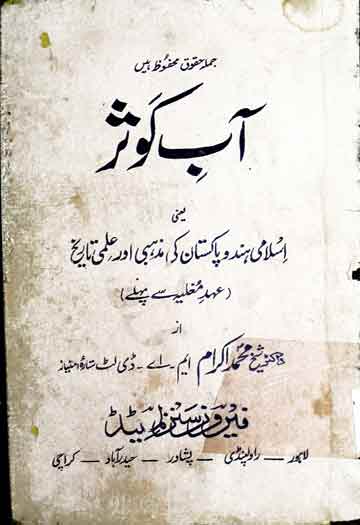 جملہ حقوق محفوظ ہیں
آبِ کَوثر
یعنی
اِسلامی ہند و پاکستان کی مذہبی اور علمی تاریخ
(عہدِ مُغلیہ سے پہلے)
از
ڈاکٹر شیخ محمد اکرام ایم - اے - ڈی لٹ ستارۂ امتیاز
فیروز سنز لمیٹڈ
لاہور — راولپنڈی — پشاور — حیدرآباد — کراچی